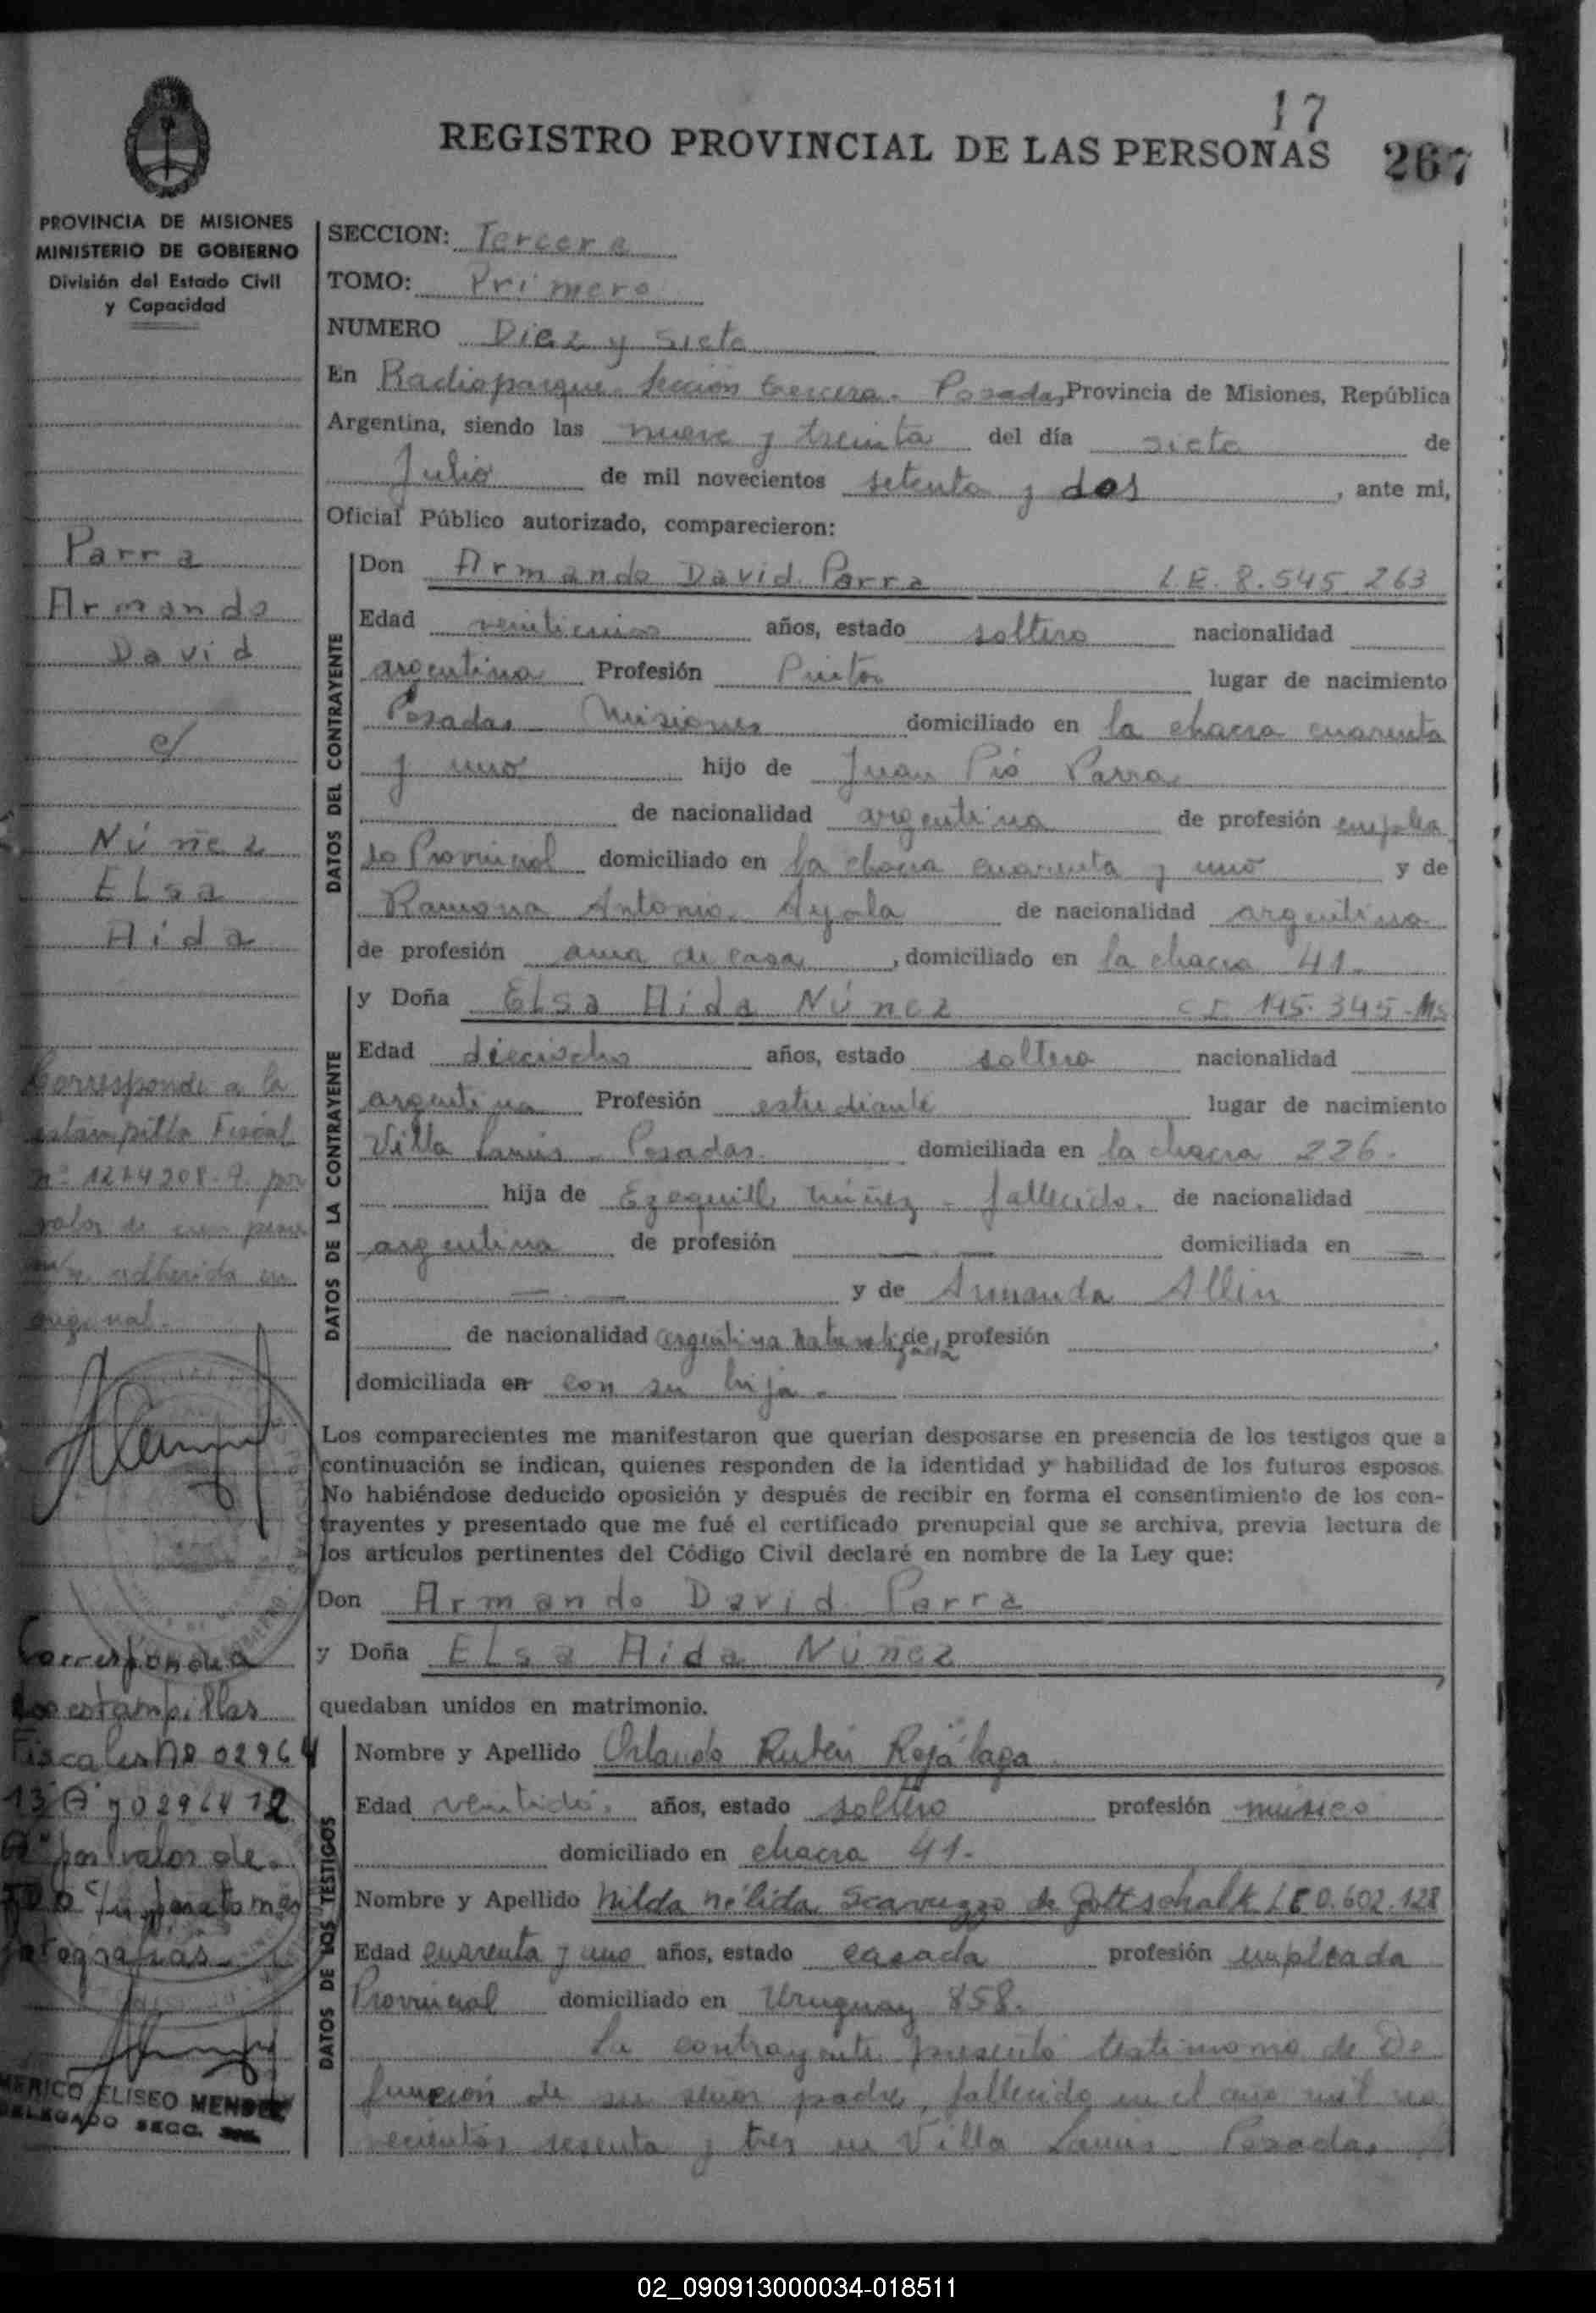 17
REGISTRO PROVINCIAL DE LAS PERSONAS 267
PROVINCIA DE MISIONES
MINISTERIO DE GOBIERNO
División del Estado Civil
y Capacidad
Parra
Armando
David
c/
Núñez
Elsa
Aida
Corresponde a la
estampilla Fiscal
por
valor de un peso
adherida en
original.
Corresponde a
dos estampillas
Fiscales Nº 02964
13 A y 0296412
A por valor de
para tomas
fotografias
AMERICO ELISEO MENDEZ
DELEGADO SECC.
SECCION: Tercera
TOMO: Primero
NUMERO Diez y siete
En Radioparque Sección tercera - Posadas, Provincia de Misiones, República
Argentina, siendo las nueve y treinta del día siete de
Julio de mil novecientos setenta y dos, ante mi,
Oficial Público autorizado, comparecieron:
DATOS DEL CONTRAYENTE
Don Armando David Parra L.E. 8.545.263
Edad años, estado soltero nacionalidad
argentina Profesión Pintor lugar de nacimiento
Posadas Misiones domiciliado en la chacra cuarenta
y uno hijo de Juan Pio Parra
de nacionalidad argentina de profesión emplea
do Provincial domiciliado en la chacra cuarenta y uno y de
Ramona Antonia Ayala de nacionalidad argentina
de profesión ama de casa, domiciliado en la chacra 41.
DATOS DE LA CONTRAYENTE
y Doña Elsa Aida Núñez C.I. 145.345-Ms
Edad dieciocho años, estado soltera nacionalidad
argentina Profesión estudiante lugar de nacimiento
Villa Lanús - Posadas. domiciliada en la chacra 226.
hija de Núñez - fallecido. de nacionalidad
argentina de profesión — — domiciliada en —
— — y de Armanda Allin
de nacionalidad argentina naturalizada de profesión
domiciliada en con su hija.
Los comparecientes me manifestaron que querían desposarse en presencia de los testigos que a
continuación se indican, quienes responden de la identidad y habilidad de los futuros esposos.
No habiéndose deducido oposición y después de recibir en forma el consentimiento de los con-
trayentes y presentado que me fué el certificado prenupcial que se archiva, previa lectura de
los artículos pertinentes del Código Civil declaré en nombre de la Ley que:
Don Armando David Parra
y Doña Elsa Aida Núñez
quedaban unidos en matrimonio.
DATOS DE LOS TESTIGOS
Nombre y Apellido Orlando Rubén
Edad años, estado soltero profesión músico
domiciliado en chacra 41.
Nombre y Apellido Nilda Nélida Scavuzzo de Gottschalk LE 0.602.128
Edad cuarenta y uno años, estado casada profesión empleada
Provincial domiciliado en Uruguay 858.
La contrayente presentó testimonio de De
función de su señor padre, fallecido en el año mil no
vecientos sesenta y tres en Villa Lanús - Posadas
02_090913000034-018511